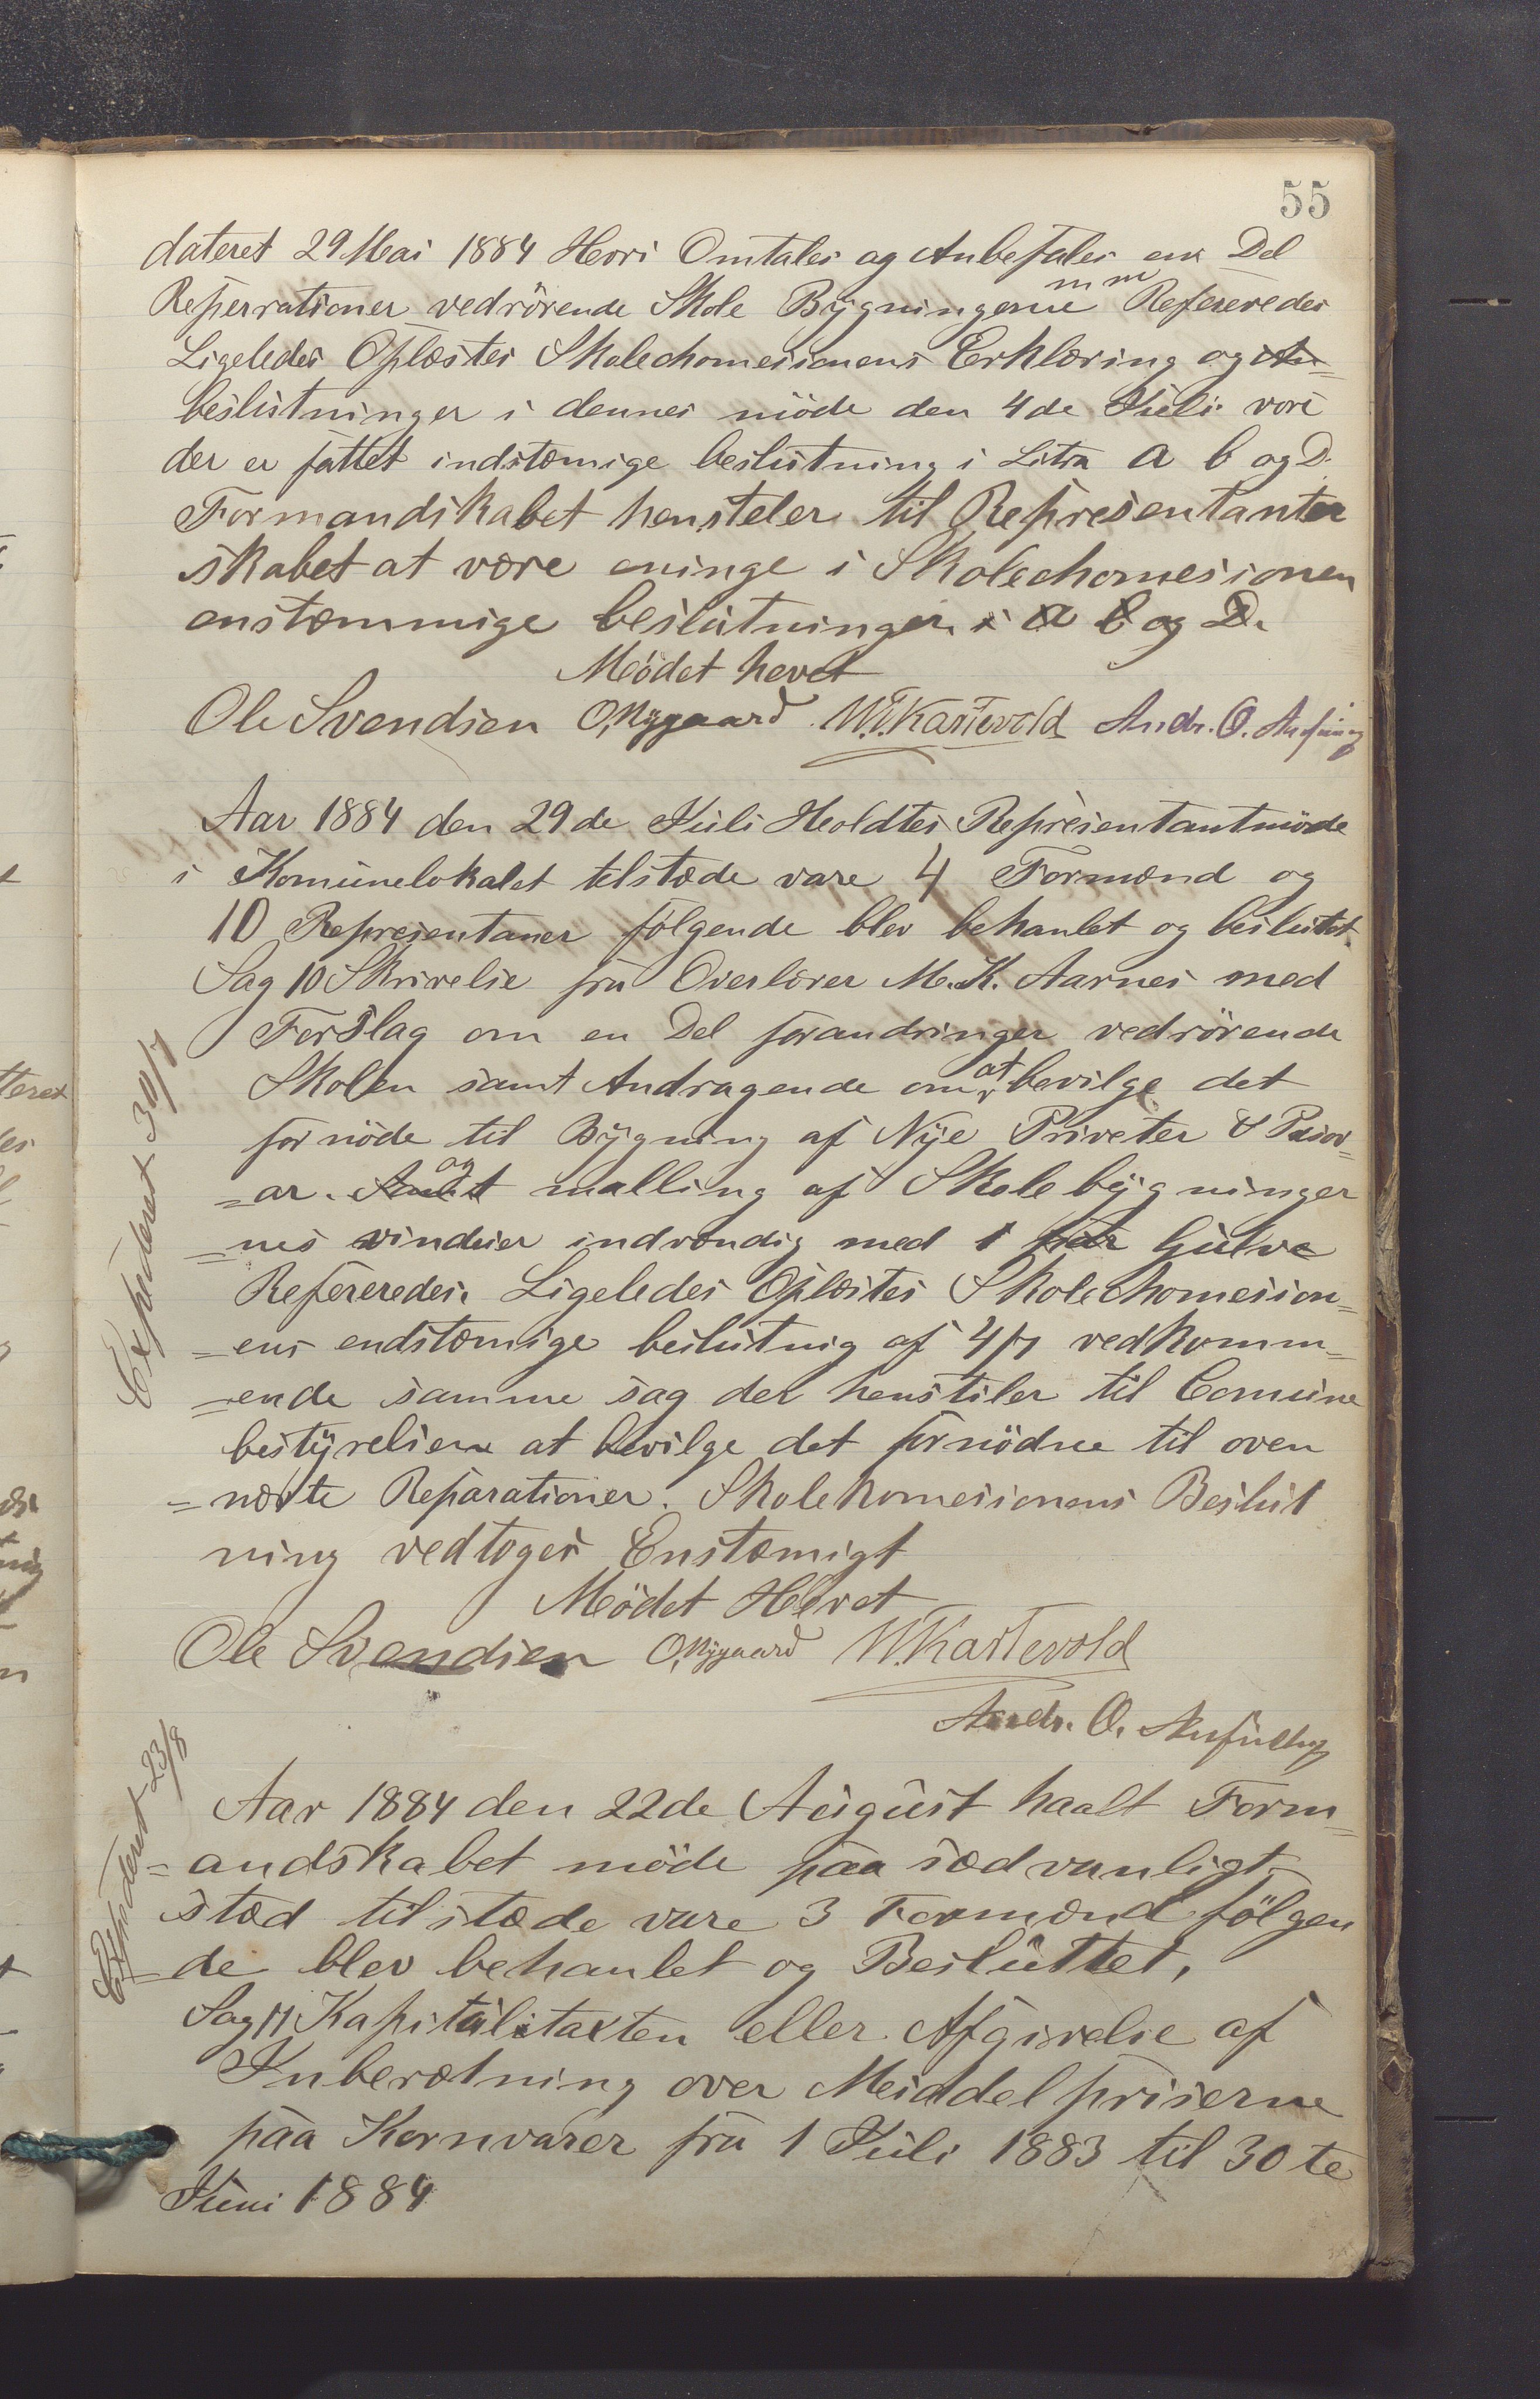 55
dateret 29 Mai 1884 Hvori Omtales og Anbefales en Del
Reperrationer vedrörende Skole Bygningerne m m Refereredes
Ligeledes Oplæstes Skolechomesionens Erklæring og An=
beslutninger i dennes möde den 4de Juli vori
der er fattet indstæmige beslutning i Litra a b og D.
Formandskabet hensteler til Representanter
skabet at være eninge i Skolechomesionen
enstæmmige beslutninger i a b og D.
Mödet hevet
Ole Svendsen O, Nygaard W. T. Kartevold Andr. O.
Aar 1884 den 29de Juli Holdtes Representantmöde
i Komunelokalet telstæde vare 4 Formænd og
10 Represientaner fölgende blev behanlet og beslutet
Sag 10 Skrivelse fra Overlærer M. K. Aarnes med
Forslag om en Del forandringer vedrörende
Skolen samt Andragende om at bevilge det
for nöde til Bygning af Nye Priveter & Pisov
=ar. Samt og malling af Skole bygninger
=nes vinduer indvændig med 1 Gulve
Refereredes. Ligeledes Oplæstes Skolechomesion=
=ens endstæmige beslutnig af 4/7 vedkomm=
=ende samme sag der henstiler til Comune
bestyrelsen at bevilge det fornödne til oven
=nævte Reparationer. Skolekomesionens Beslut
ning vedtoges Enstæmigt
Mödet Hevet
Ole Svendsen O, Nygaard W. Kartevold
Andr. O.
Expederet 30/7
Expederet 23/8
Aar 1884 den 22de August haalt Form=
=andskabet möde paa sædvanligt
stæd tilstæde vare 3 Formænd fölgen
=de blev behanlet og Besluttet,
Sag 11 Kapitulstaxten eller Afgivelse af
Inberætning over Meiddelpriserne
paa Kornvarer fra 1 Juli 1883 til 30te
Juni 1884